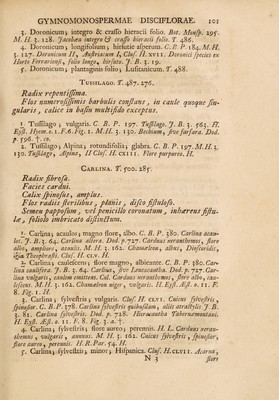 GYMNOMONOSPERMAE DISCIFLORAE. 101
3. Doronicum; integro & crasso hieracii folio. Bot. Monsp. 295.
M. H. 3. 128. Jacobæa integro & crasso hieracii folio. T. 486.
4. Doronicum; longifolium; hirsutie asperum. C. B. P. 184. M. H.
3. 127. Doronicum II, Austriacum I, Cluf. H. XVII. Doronici species ex
Horto Ferrariensi, folio longo, hirsuto. J. B. 3. 19.
5. Doronicum; plantaginis folio; Lusitanicum. T. 488.
TUSSILAGO. T. 487. 276.
Radix repentissima.
Flos numerosissimis barbulis constans, in caule quoque sin-
gularis, calice in basin multifido exceptus.
1. Tussilago; vulgaris. C. B. P. 197. Tussilago. J. B. 3. 563. H.
Eyst. Hyem. o. 1. F. 6. Fig. 1. M. H. 3. 130. Bechium, sive farfara. Dod.
p. 596. †. co.
2. Tussilago; Alpina; rotundifolia; glabra. C. B. P. 197. M. H. 3.
130. Tussilago, Alpina, II Cluf. H. CXIII. Flore purpureo. H.
CARLINA. T. 500. 285.
Radix fibrosa.
Facies cardui.
Calix spinosus, amplus.
Flos radiis sterilibus, planis, disco fistuloso.
Semen papposum, vel penicillo coronatum, inhærens fistu-
læ, foliolo imbricato distinctum.
1. Carlina; acaulos; magno flore, albo. C. B. P. 380. Carlina acau-
los. J. B. 3. 64. Carlina altera. Dod. p. 727. Carduus xeranthemos, flore
albo, ampliore, acaulis. M. H. 3. 162. Chamæleon, albus, Dioscoridis,
Theophrasti. Cluf. H. CLV. H.
2. Carlina; caulescens; flore magno, albicante. C. B. P. 380. Car-
lina caulifera. J. B. 3. 64. Carlina, sive Leucacantha. Dod. p. 727. Car-
lina vulgaris, caulem emittens. Col. Carduus xeranthemos, flore albo, cau-
lescens. M. H. 3. 162. Chamæleon niger, vulgaris. H. Eyst. Æst. o. 11. F.
8. Fig. 1. H.
3. Carlina; sylvestris; vulgaris. Cluf. H. CLVI. Cnicus sylvestris,
spinosior. C. B. P. 378. Carlina sylvestris quibusdam, aliis atractylis J. B.
3. 81. Carlina sylvestris. Dod. p. 728. Hieracantha Tabernæmontani.
H. Eyst. Æst. o. 11. F. 8. Fig. 3. a. †.
4. Carlina; sylvestris; flore aureo; perennis. H. L. Carduus xeran-
themos, vulgaris, annuus. M. H. 3. 162. Cnicus sylvestris, spinosior,
flore aureo, perennis. H. R. Par. 54. H.
5. Carlina; sylvestris; minor; Hispanica. Cluf. H. CLVII. Acarna,
N 3 flore